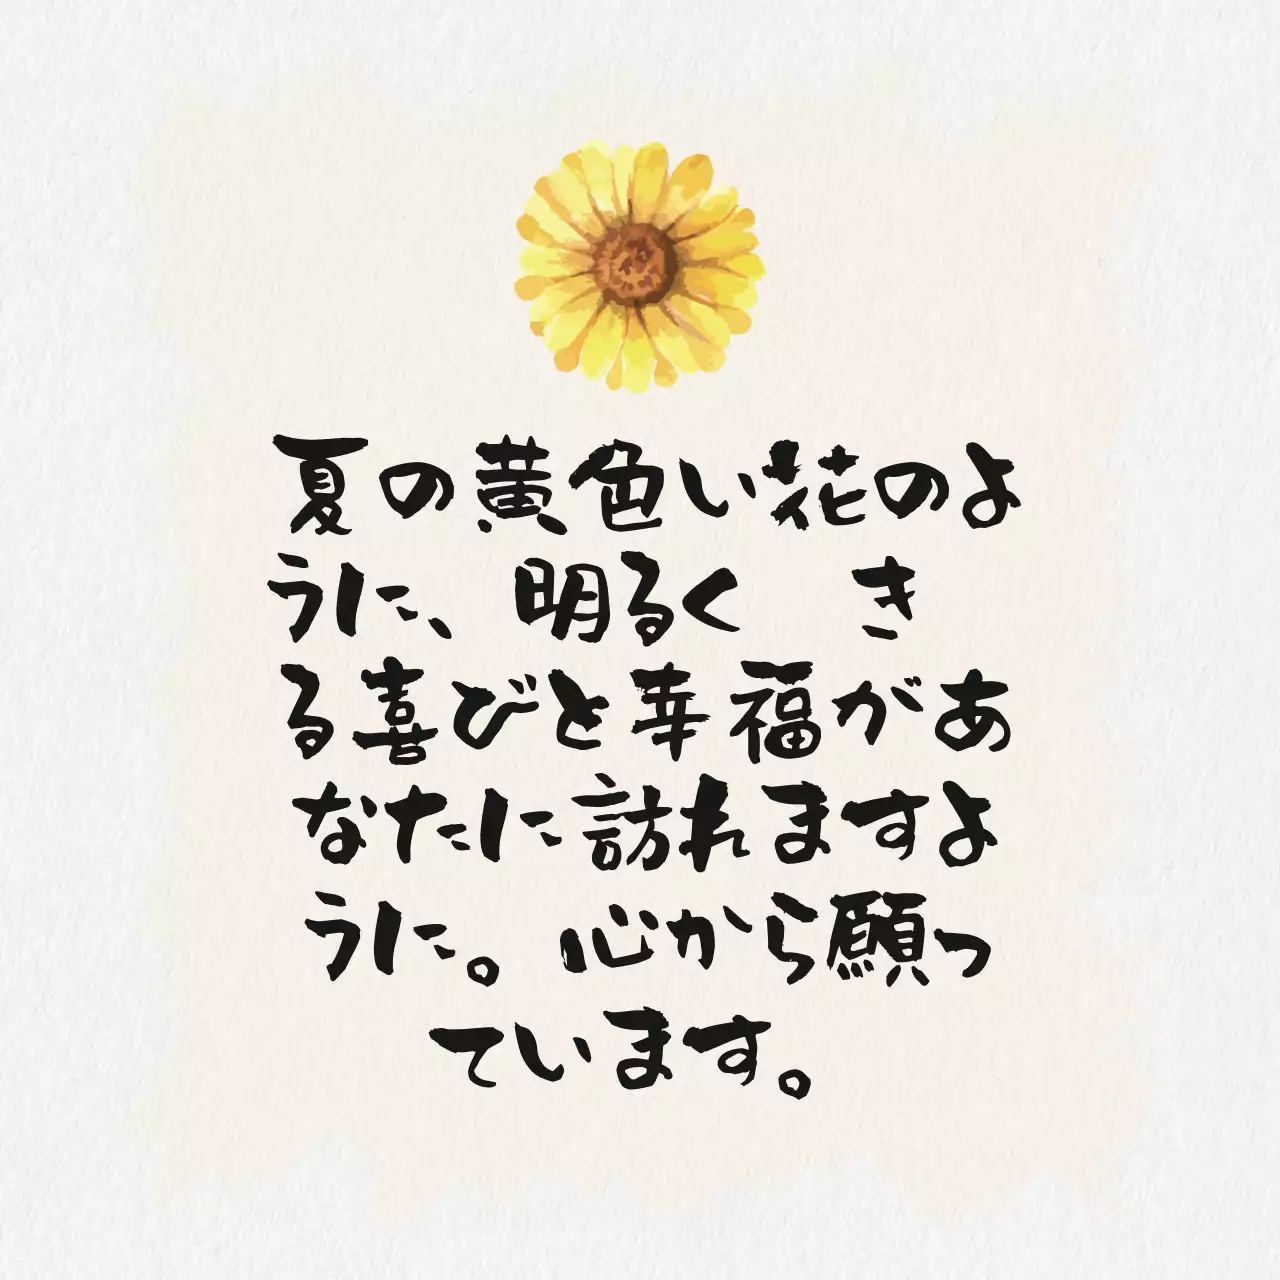 夏の黄色い花のよ
うに、明るく　き
る喜びと幸福があ
なたに訪れますよ
うに。心から願っ
ています。